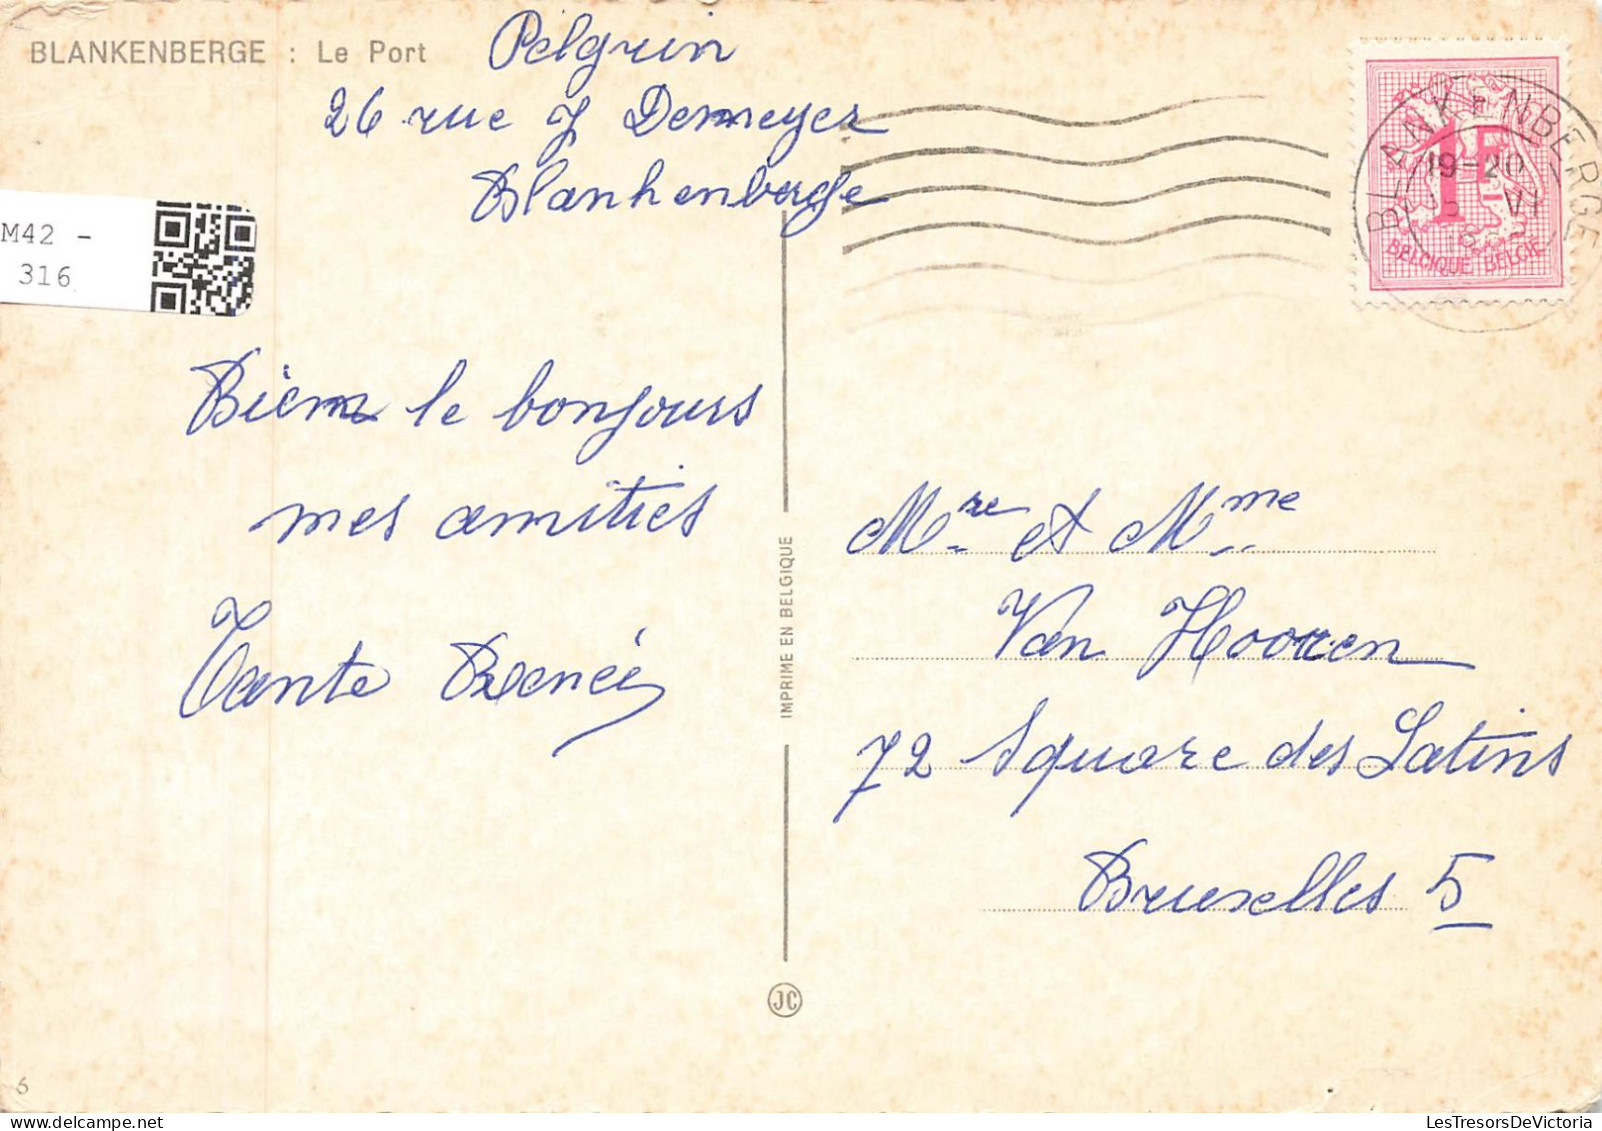 BLANKENBERGE : Le Port
Pelgrin
26 rue J Demeyer
Blankenberge
M42 -
316
Bien le bonjours
mes amitiés
Tante Renée
IMPRIME EN BELGIQUE
JC
6
BLANKENBERGE
19-20
15 VI
1F
BELGIQUE BELGIE
Mre et Mme
Van Hooren
72 Square des Latins
Bruxelles 5
LesTresorsDeVictoria